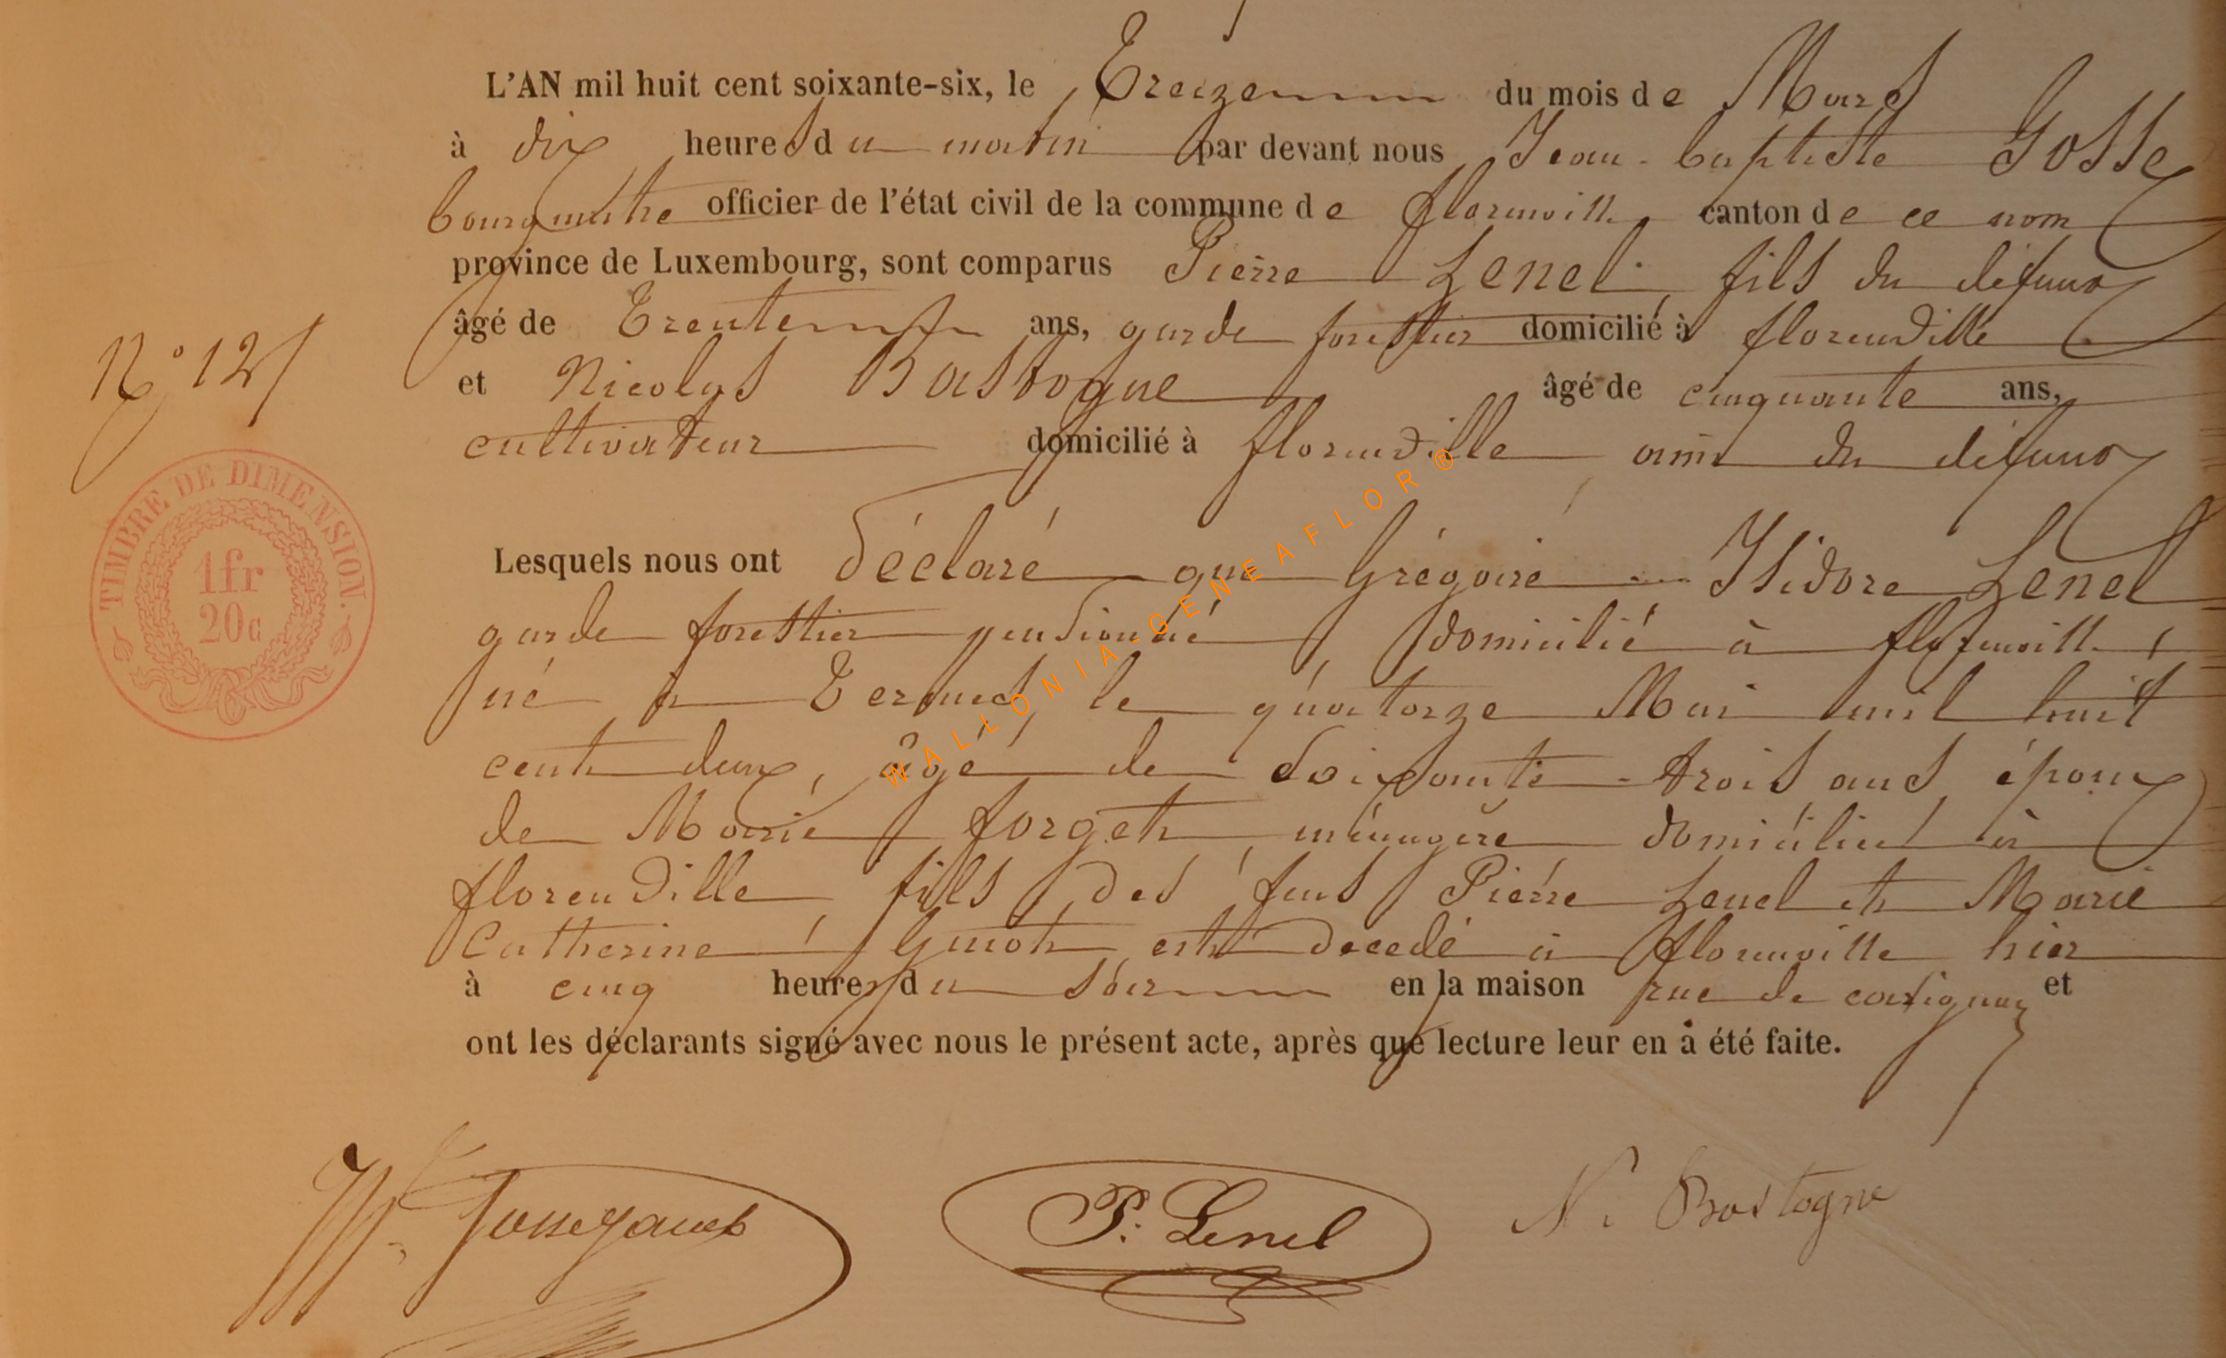 L'AN mil huit cent soixante-six, le Treizemm du mois de Mars
à dix heures du matin par devant nous Jean-baptiste Gosse
bourgmestre officier de l'état civil de la commune de florenville canton de ce nom
province de Luxembourg, sont comparus Pierre Lenel, fils du défunt
âgé de Trente ans, garde forestier domicilié à florenville
et Nicolas Bastogne âgé de cinquante ans,
N.° 12
cultivateur domicilié à florenville ami du défunt
TIMBRE DE DIMENSION.
1fr
20c
Lesquels nous ont déclaré que Grégoire Isidore Lenel
garde forestier pensionné domicilié à florenville,
né à Termes, le quatorze Mai mil huit
cent deux, âgé de Soixante-trois ans, époux
de Marie forget, ménagère domiciliée à
florenville fils des feus Pierre Lenel et Marie
Catherine Guiot, est décédé à florenville hier
à cinq heures du soir en la maison rue de carignan et
ont les déclarants signé avec nous le présent acte, après que lecture leur en a été faite.
P. Lenel
N. Bastogne
WALLONIA-GENEAFLOR®